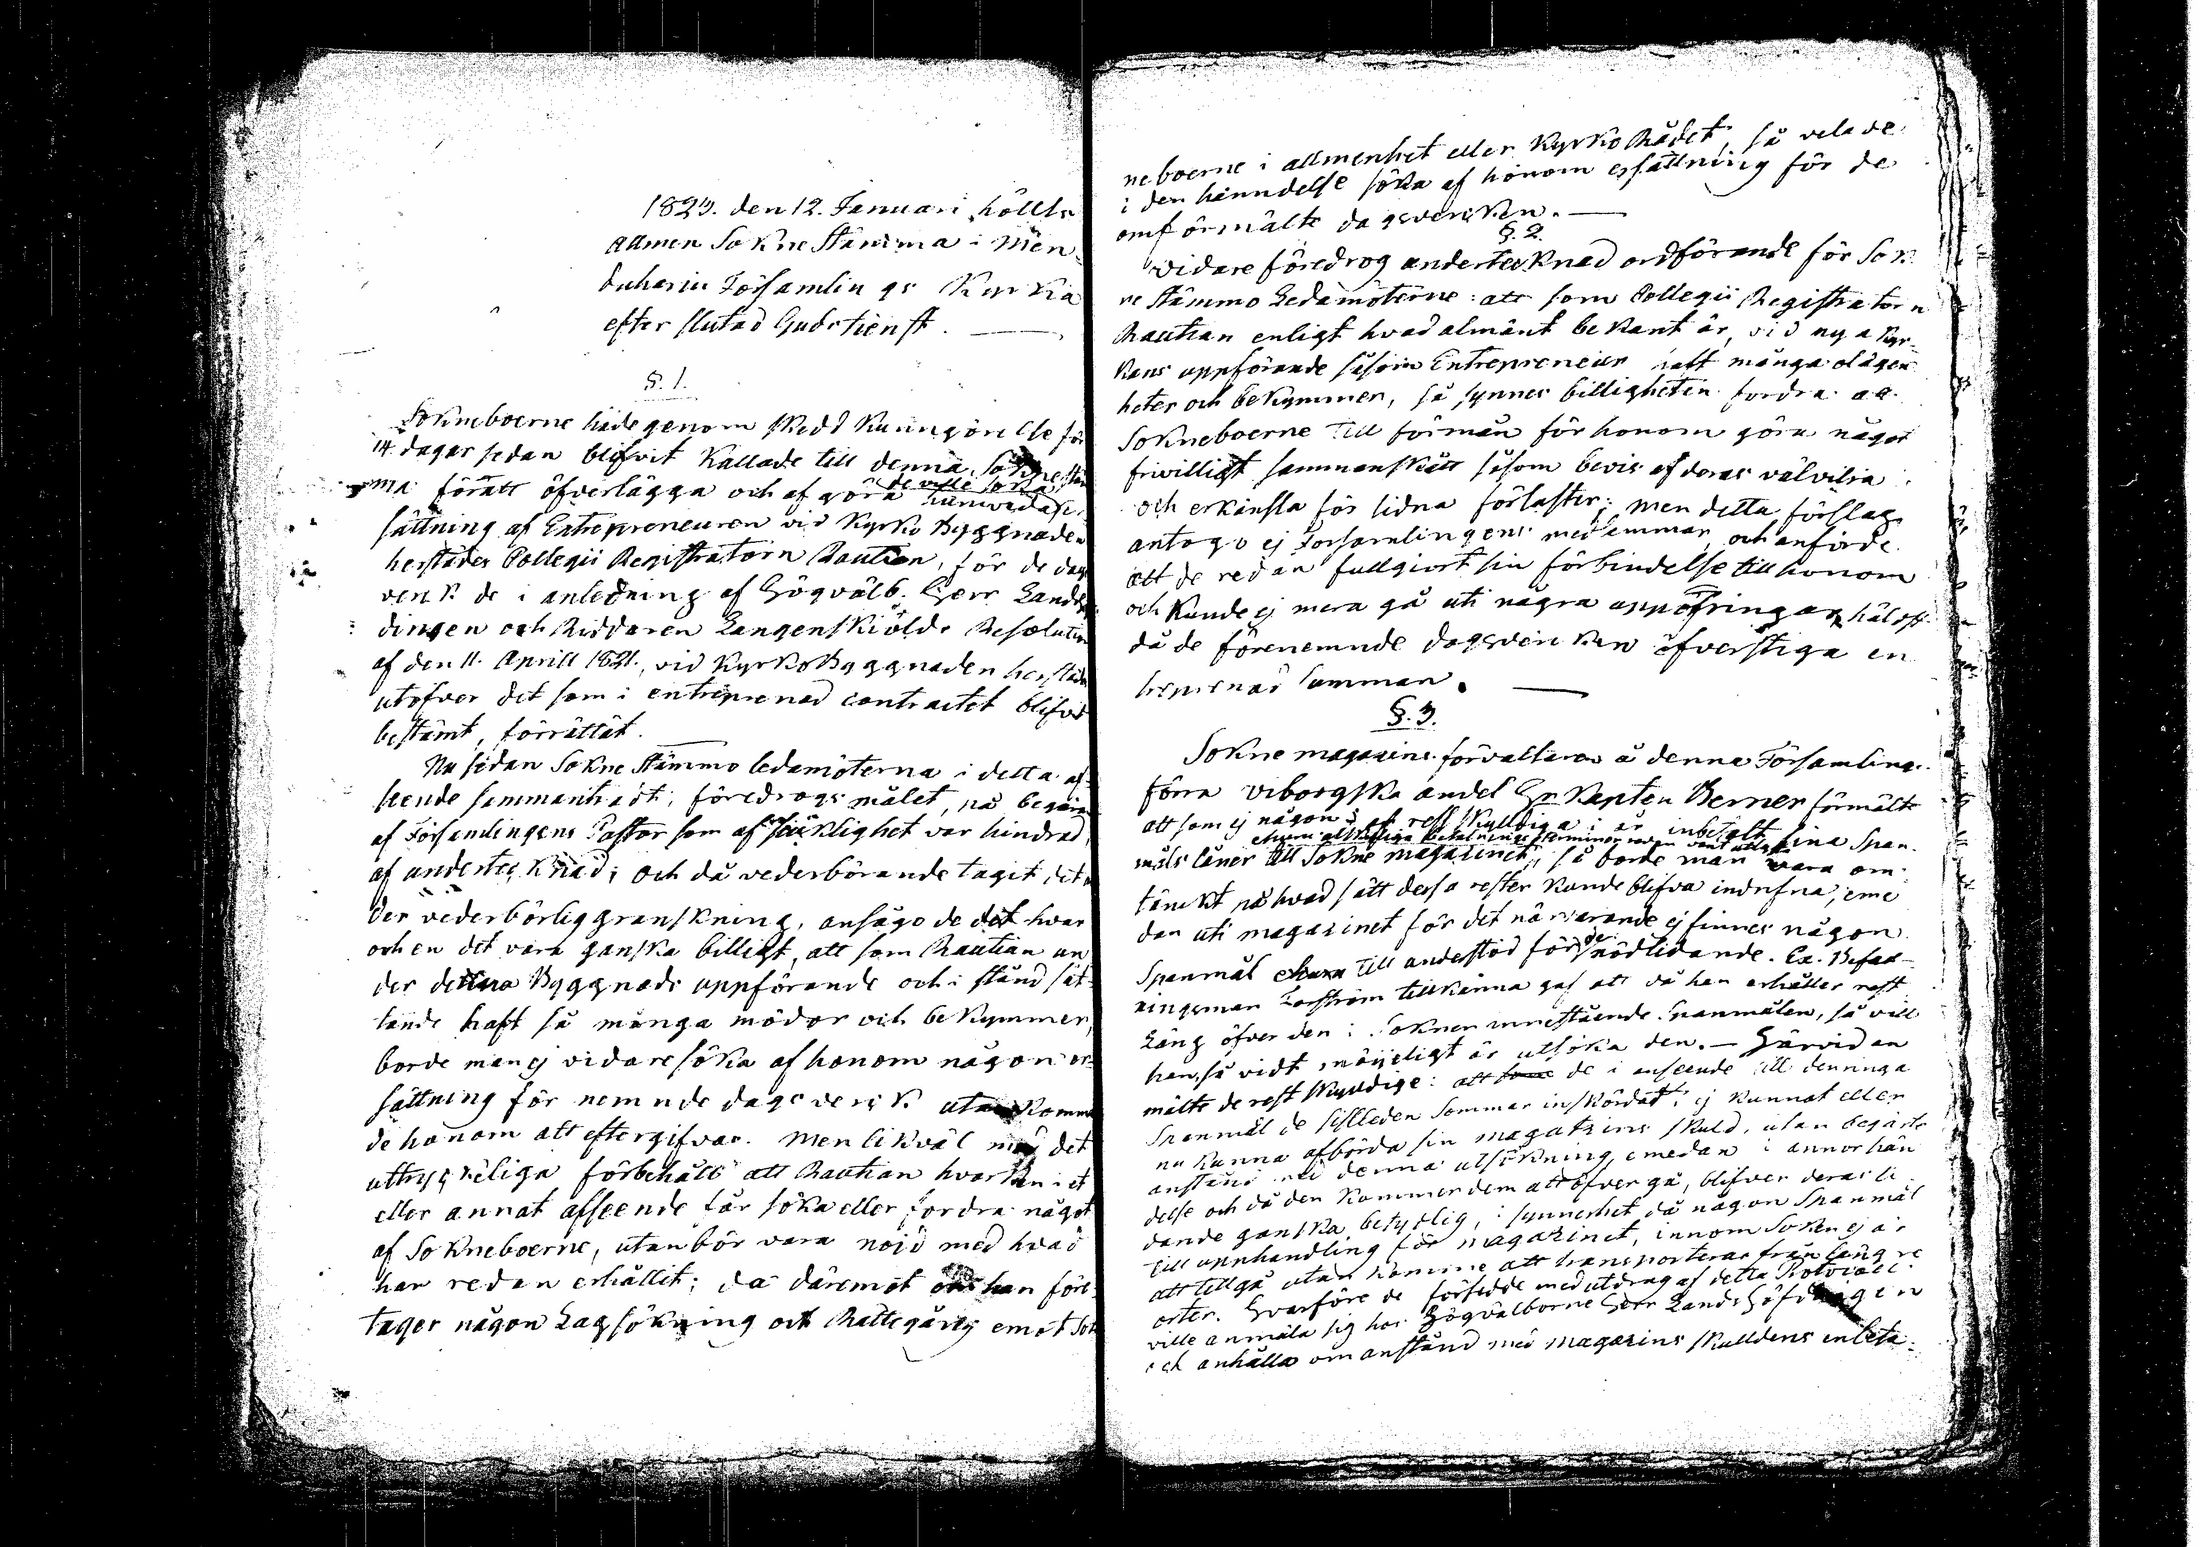 1823. den 12. Januari hölls
allmen Sokne Stämma i Men
duharju Församlings Kyrka
efter slutad Gudstienst.
§. 1.
Sokneboerne hade genom skedd Kungörelse för
14 dagar sedan blifvit Kallade till denna Soknestäm
ma föratt öfverlägga och afgöra huruvida de ville söka er
sättning af Entrepreneuren vid Kyrko Byggnaden
herstädes Collegii Registratorn Rautian, för de dags
verk de i anledning af Högvälb. Herr Landshöf
dingen och Riddaren Langenskiölds Resolution
af den 11. Aprill 1821, vid KyrkoByggnaden herstädes
utöfver det som i entreprenad contractet blifvit
bestämt, förrättat.
Nu sedan Sokne Stämmo ledamöterna i detta af
seende sammanträdt, föredrogs målet, på begäran
af Församlingens Pastor som af sjuklighet var hindrad,
af undertecknad; och då vederbörande tagit det un
der vederbörlig granskning, ansågo de det hvar
och en det vara ganska billigt, att som Rautian un
der denna Byggnads uppförande och i stånd sät
tande haft så många mödor och bekymmer,
borde man ej vidare söka af honom någon er
sättning för nemnde dagsverk utan komme
de honom att eftergifvas. Men likväl med det
uttryckeliga förbehåll att Rautian hvarken i et
eller annat afseende får söka eller fordra något
af Sokneboerne, utan bör vara nöjd med hvad
han redan erhållit; då däremot om han före
tager någon Lagsökning och Rättegång emot Sok
neboerne i allmenhet eller KyrkoRådet, så vela de
i den hänndelse söka af honom ersättning för de
omförmälte dagsverken.
§. 2.
Vidare föredrog undertecknad ordförande för Sok
ne Stämmo Ledamöterne: att som Collegii Registratorn
Rautian enligt hvad almänt bekant är, vid nya Kyr
kans uppförande såsom Entrepreneur haft många olägen
heter och bekymmer, så synnes billigheten fordra att
Sokneboerne till förmån för honom göra något
frivilligt sammanskått såsom bevis af deras välvilia
och erkänsla för lidna förluster; men detta förslag
antogo ej Församlingens medlemmar och anförde
att de redan fullgiort sin förbindelse till honom
och kunde ej mera gå uti några uppofringar, hälst
då de förenemnde dagsverken öfverstiga en
treprenad summan.
§. 3.
Sokne magasins förvaltaren å denna Församlings
förra viborgska andel Hr Kapten Berner förmälte
att som ej någon af rest skyldiga i år inbetalt sina Span
måls låner till Sokne magasinet, så borde man vara om
tänckt på hvad sätt dessa rester kunde blifva indrifna, eme
dan uti magasinet för det närvarande ej finnes någon
Spanmål till understöd för de nödlidande. Ex. Befall
ningsman Forström tillkänna gaf att då han erhåller rest
Läng öfver den i Soknen innestående Spanmålen, så vill
han, så vidt möijeligt är utsöka den. — Härvid an
mälte de rest skyldige: att de i anseende till den ringa
Spanmål de sistleden Sommar inskördat, ej kunnat eller
nu kunna afbörda sin magasins skuld, utan begärte
anstånd med denna utsökning, emedan i annor hän
delse och då den kommer dem att öfvergå, blifver deras li
dande ganska betydlig, i synnerhet då någon Spanmål
till upphandling för magasinet, innom Soken ej är
att tillgå utan komme att transporteras från längre
orter. Hvarföre de försedde med utdrag af detta Protocoll
ville anmäla sig hos Högvälborne Herr LandsHöfdingen
och anhålla om anstånd med magasins skuldens inbeta